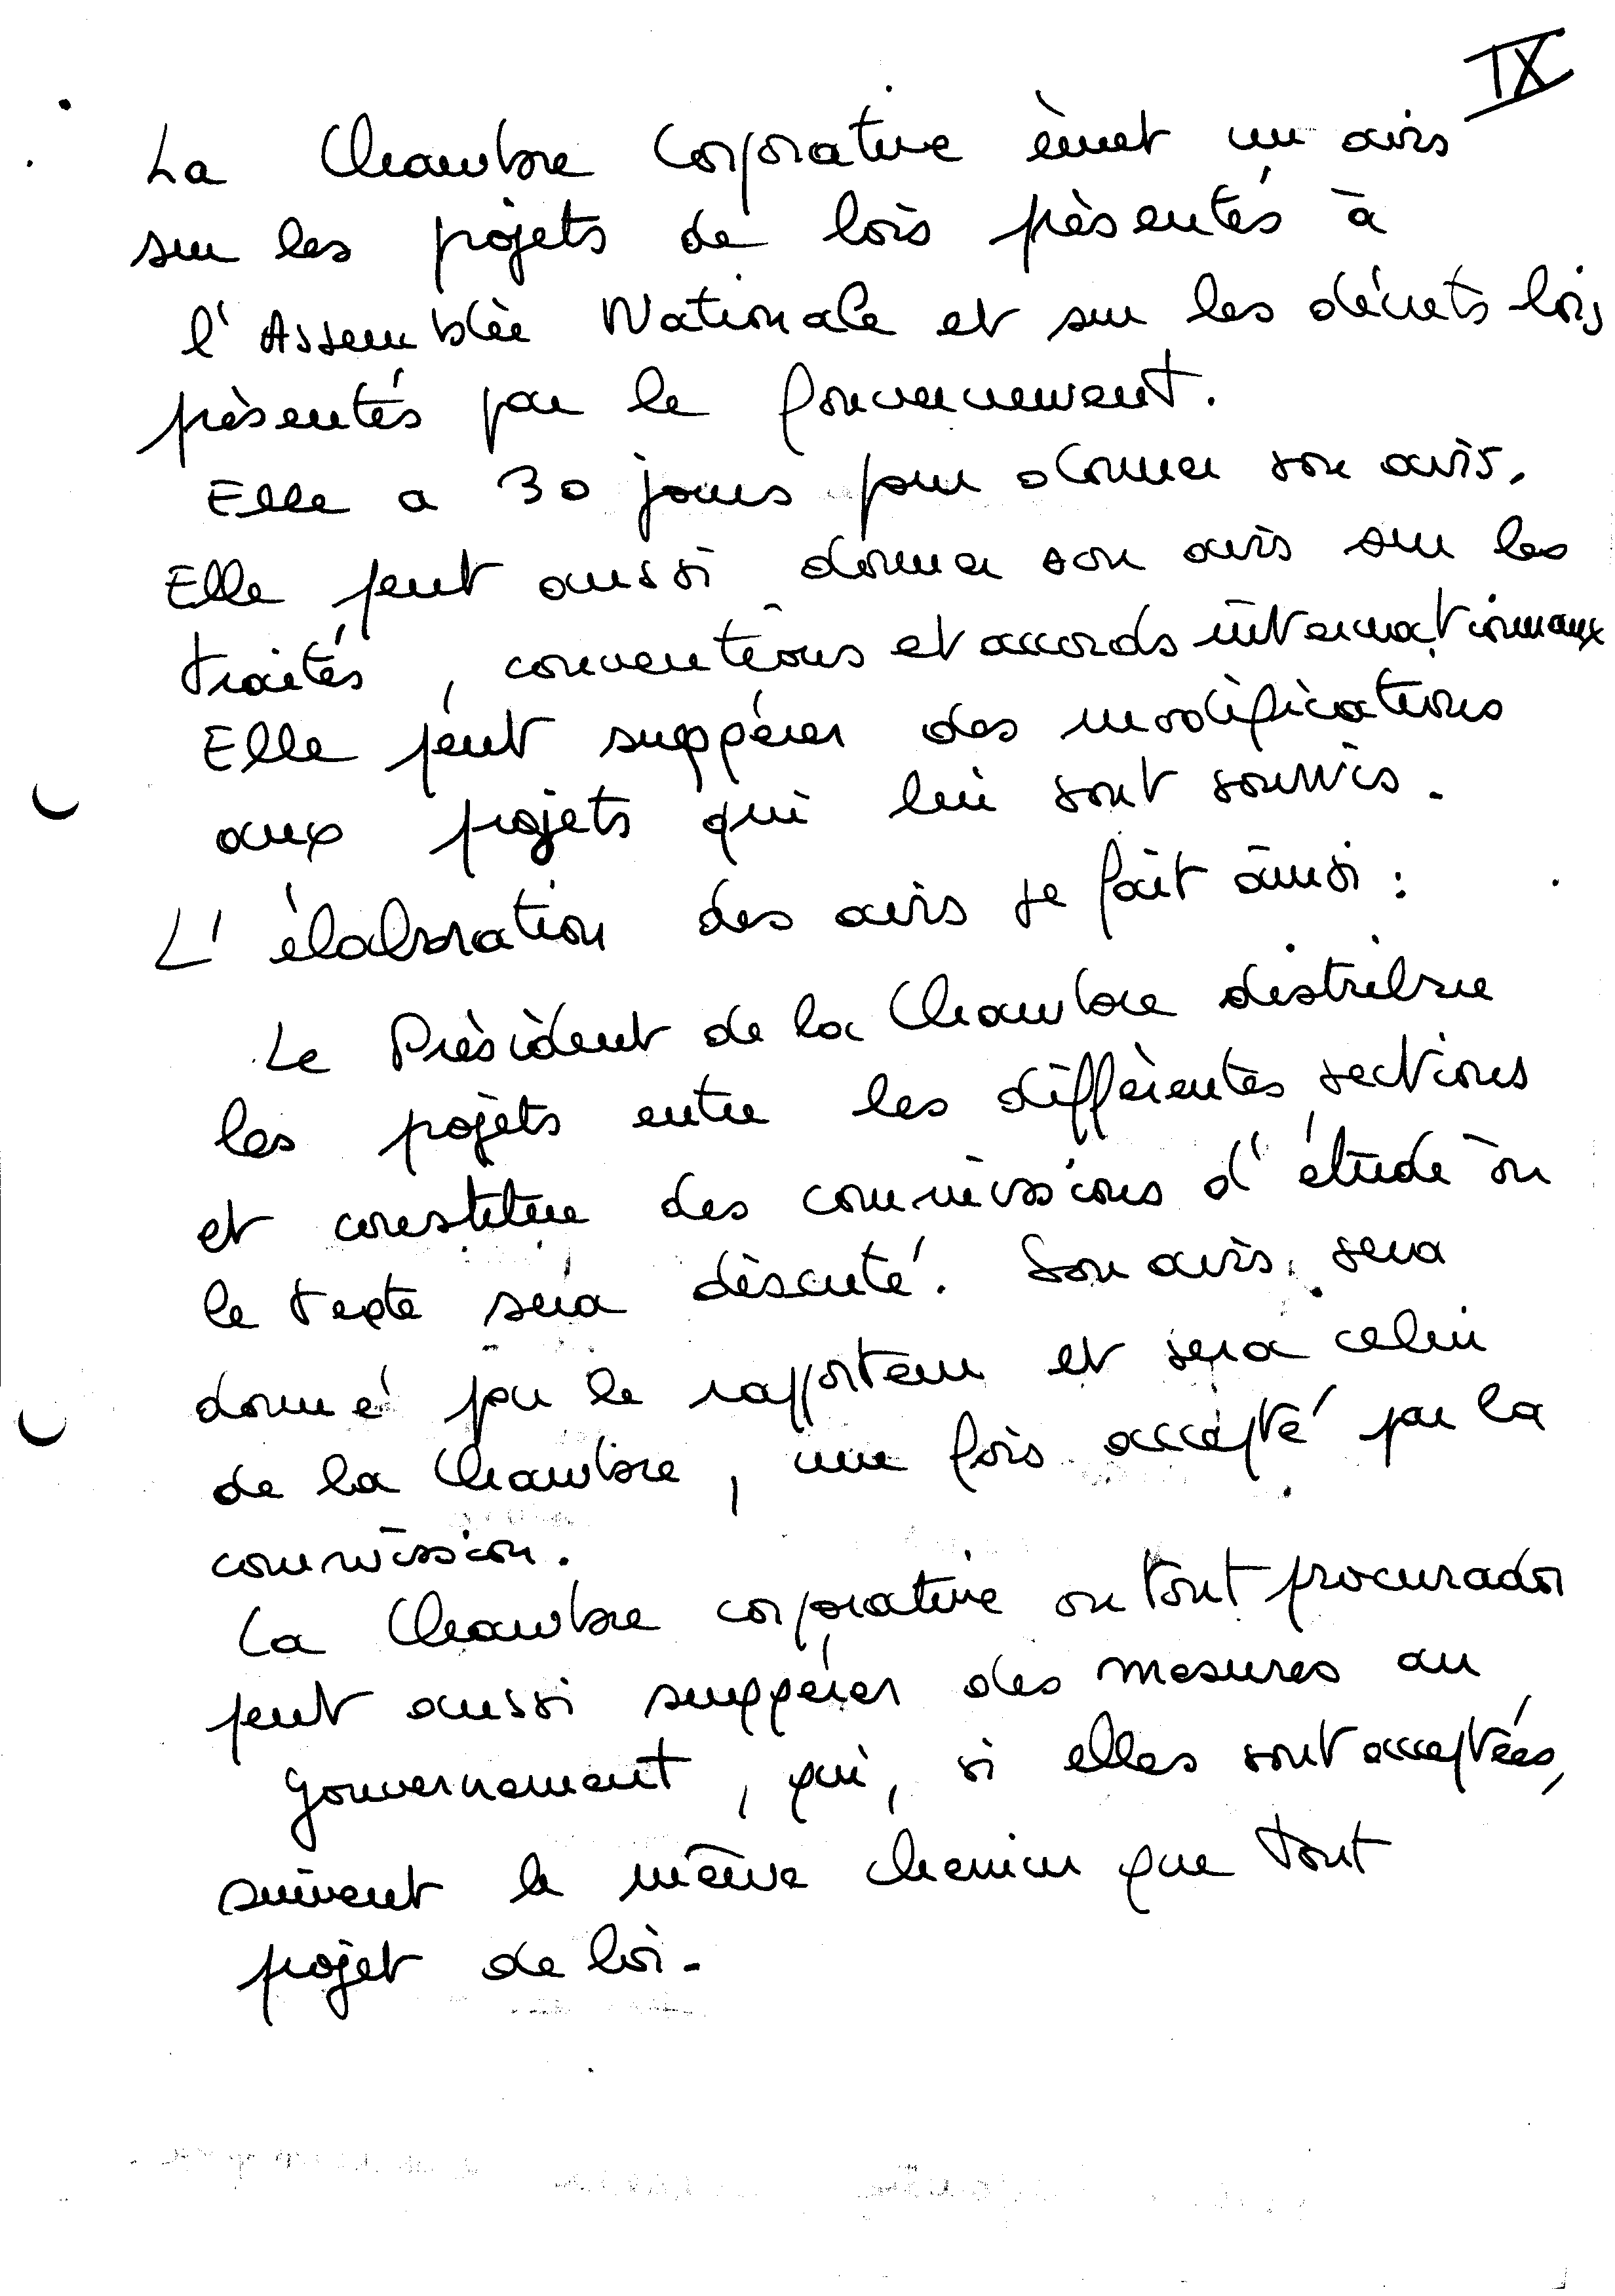 IX
La Chambre Corporative émet un avis
sur les projets de lois présentés à
l'Assemblée Nationale et sur les décrets lois
présentés par le Gouvernement.
Elle a 30 jours pour donner son avis.
Elle peut aussi donner son avis sur les
traités, conventions et accords internationaux
Elle peut suggérer des modifications
aux projets qui lui sont soumis.
L'élaboration des avis se fait ainsi :
Le Président de la Chambre distribue
les projets entre les différentes sections
et constitue des commissions d'étude où
le texte sera discuté. Son avis, sera
donné par le rapporteur et sera celui
de la Chambre, une fois accepté par la
commission.
La Chambre corporative ou tout procurador
peut aussi suggérer des mesures au
gouvernement, qui, si elles sont acceptées,
suivent le même chemin que tout
projet de loi.